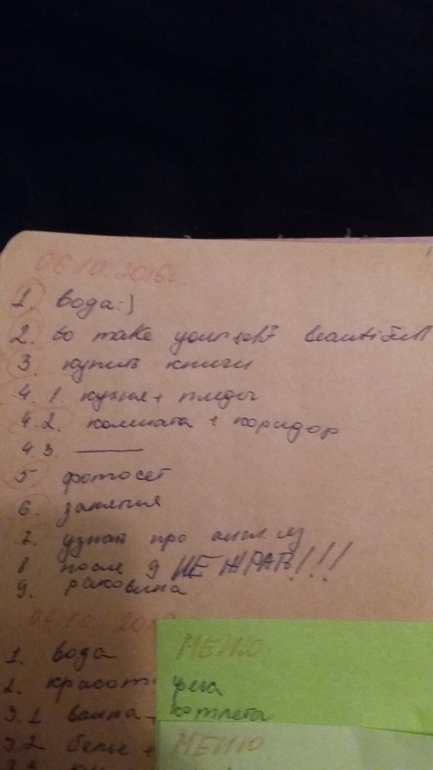 06.10.2016
1. Вода:)
2. to make yourself beautifull
3. купить книги
4.1. кухня + пледы
4.2. комната + коридор
4.3.
5. фотосет
6. занятия
7. узнать про англ яз
8 после 9 НЕ ЖРАТЬ!!!
9. раковина
1. Вода
МЕНЮ
2. красот
уха
3.1 ванна
котлета
3.2 белье +
МЕНЮ